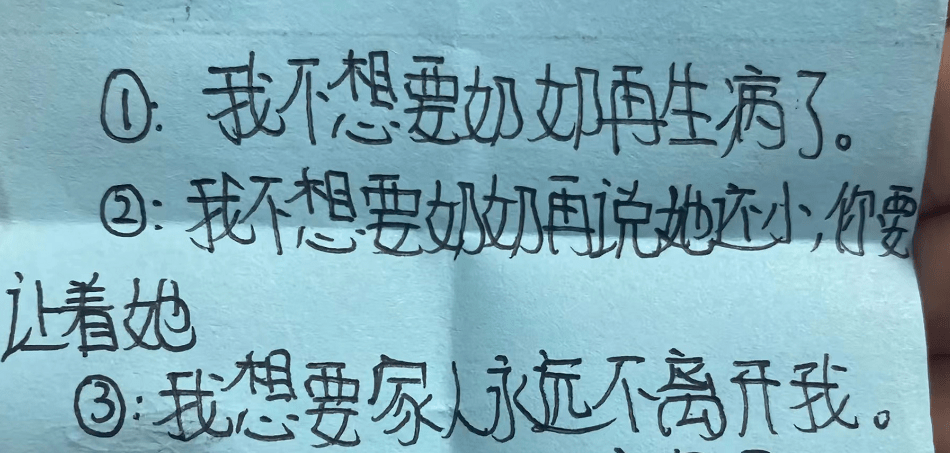 ①：我不想要奶奶再生病了。
②：我不想要奶奶再说她还小，你要
让着她
③：我想要家人永远不离开我。